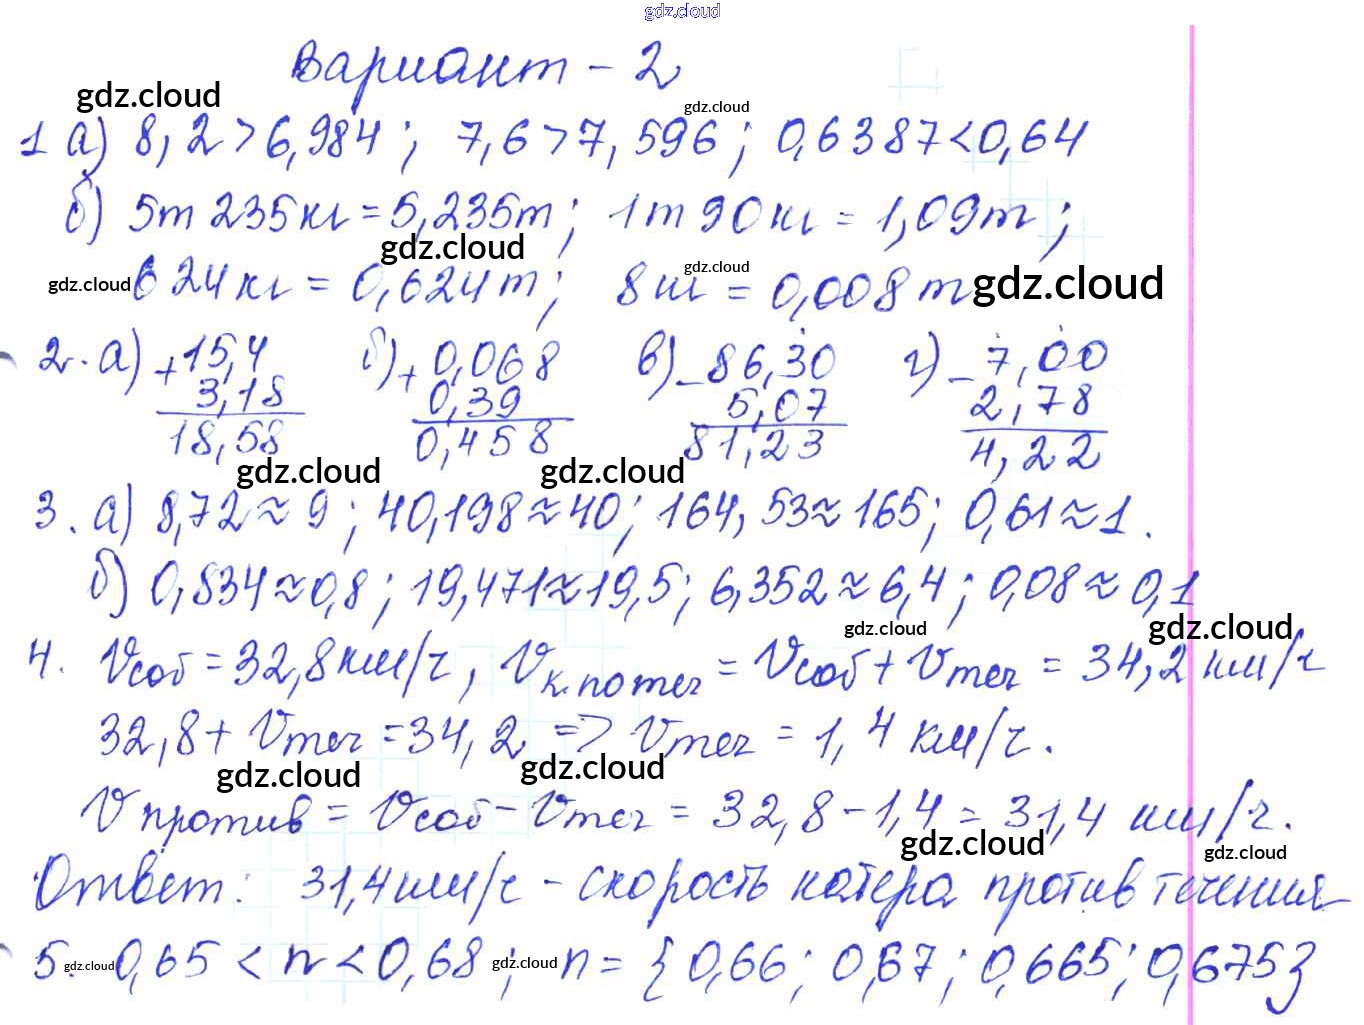 gdz.cloud
Вариант - 2
gdz.cloud
gdz.cloud
1 а) 8,2 > 6,984 ; 7,6 > 7,596 ; 0,6387 < 0,64
б) 5т 235кг = 5,235т ; 1т 90кг = 1,09т ;
gdz.cloud
gdz.cloud
gdz.cloud 624кг = 0,624т ; 8кг = 0,008т gdz.cloud
2. а) + 15,4 б) + 0,068 в) - 86,30 г) - 7,00
3,18 0,39 5,07 2,78
18,58 0,458 81,23 4,22
gdz.cloud gdz.cloud
3. а) 8,72 ≈ 9 ; 40,198 ≈ 40 ; 164,53 ≈ 165 ; 0,61 ≈ 1.
б) 0,834 ≈ 0,8 ; 19,471 ≈ 19,5 ; 6,352 ≈ 6,4 ; 0,08 ≈ 0,1
gdz.cloud gdz.cloud
4. Vсоб = 32,8 км/ч , Vк.по теч = Vсоб + Vтеч = 34,2 км/ч
32,8 + Vтеч = 34,2 => Vтеч = 1,4 км/ч.
gdz.cloud gdz.cloud
Vпротив = Vсоб - Vтеч = 32,8 - 1,4 = 31,4 км/ч.
gdz.cloud gdz.cloud
Ответ: 31,4 км/ч - скорость катера против течения
5. gdz.cloud 0,65 < n < 0,68 ; gdz.cloud n = { 0,66 ; 0,67 ; 0,665 ; 0,675 }